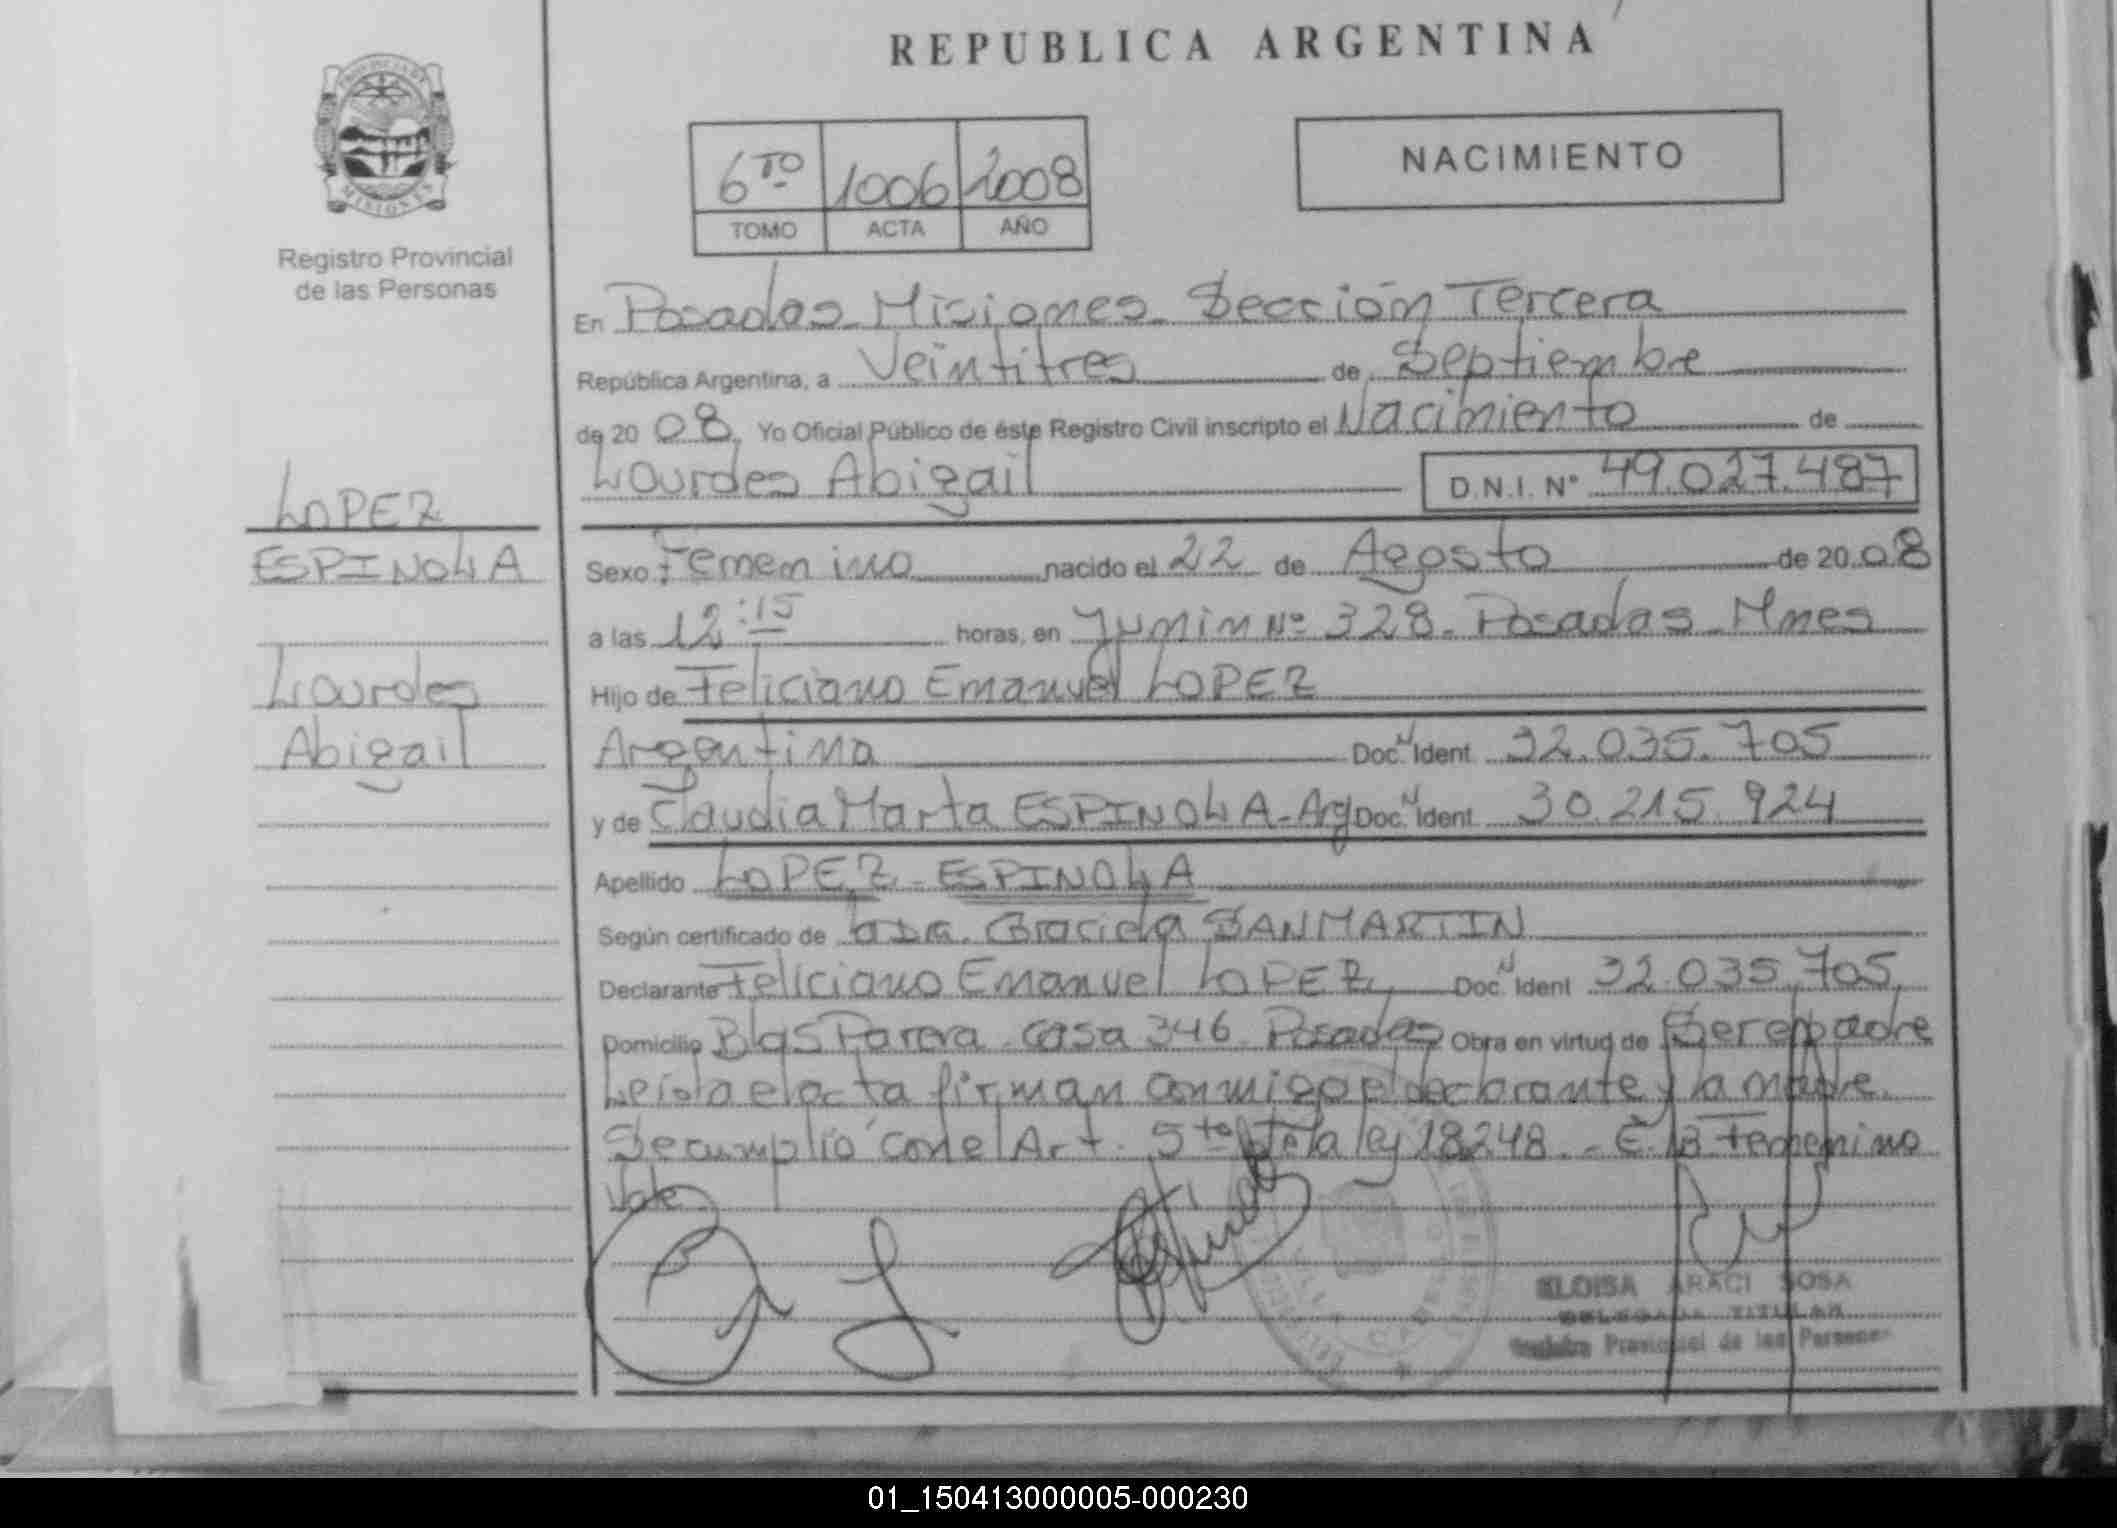 REPUBLICA ARGENTINA
PROVINCIA DE
MISIONES
Registro Provincial
de las Personas
6TO 1006 2008
TOMO ACTA AÑO
NACIMIENTO
En Posadas Misiones Sección Tercera
República Argentina, a Veintitres de Septiembre
de 20 08. Yo Oficial Público de éste Registro Civil inscripto el Nacimiento de
Lourdes Abigail D.N.I. N° 49.027.487
LOPEZ
ESPINOLA
Lourdes
Abigail
Sexo Femenino nacido el 22 de Agosto de 20 08
a las 12:15 horas, en Junin Nº 328. Posadas Mnes
Hijo de Feliciano Emanuel LOPEZ
Argentina Doc. N Ident 32.035.705
y de Claudia Marta ESPINOLA-Arg Doc. N Ident 30.215.924
Apellido LOPEZ - ESPINOLA
Según certificado de la Dra. Graciela SANMARTIN
Declarante Feliciano Emanuel LOPEZ, Doc. N Ident 32.035.705,
Domicilio Blas Parera casa 346 Posadas Obra en virtud de Ser el padre
Leída el acta firman conmigo el declarante y la madre.
Se cumplió con el Art. 5to de la ley 18248. - E. L. Femenino
Vale
ELOISA ARACI SOSA
DELEGADA TITULAR
Registro Provincial de las Personas
01_150413000005-000230